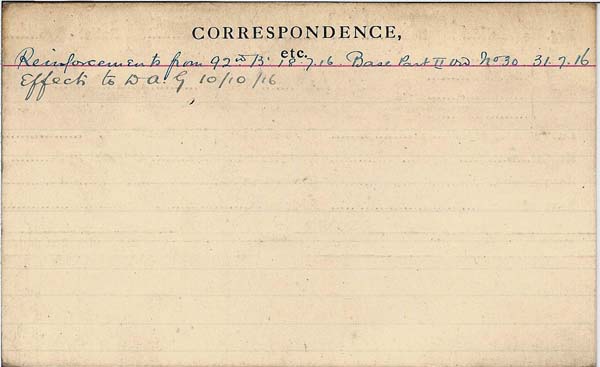 CORRESPONDENCE,
etc.
Reinforcements from 92nd Bn 18.7.16. Base Part II Ord No 30 31.7.16
Effects to D A G 10/10/16